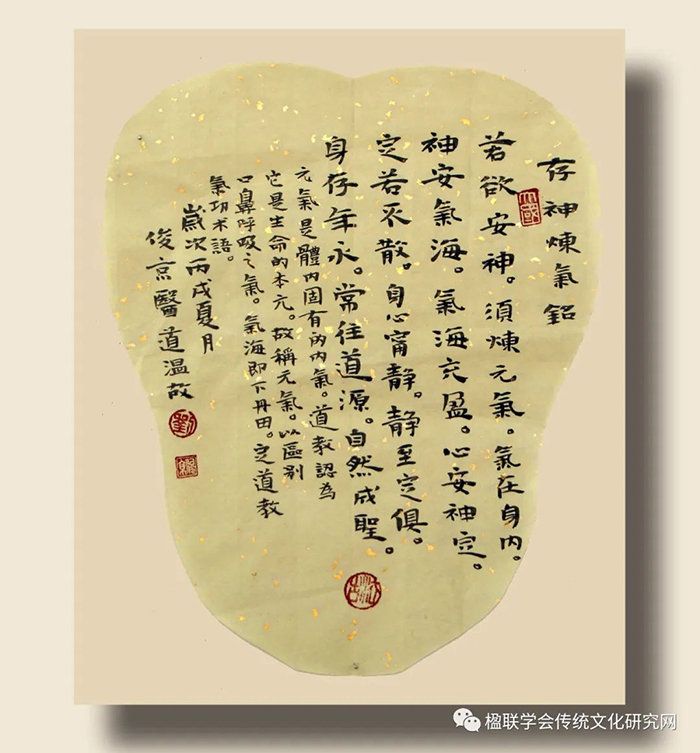 存神煉氣銘
若欲安神。須煉元氣。氣在身内。
神安氣海。氣海充盈。心安神定。
定若不散。身心甯静。静至定俱。
身存年永。常住道源。自然成聖。
元氣是體内固有的内氣。道教認為
它是生命的本元。故稱元氣。以區别
口鼻呼吸之氣。氣海即下丹田。定道教
氣功术語。
歲次丙戌夏月
俊京醫道温故
楹联学会传统文化研究网